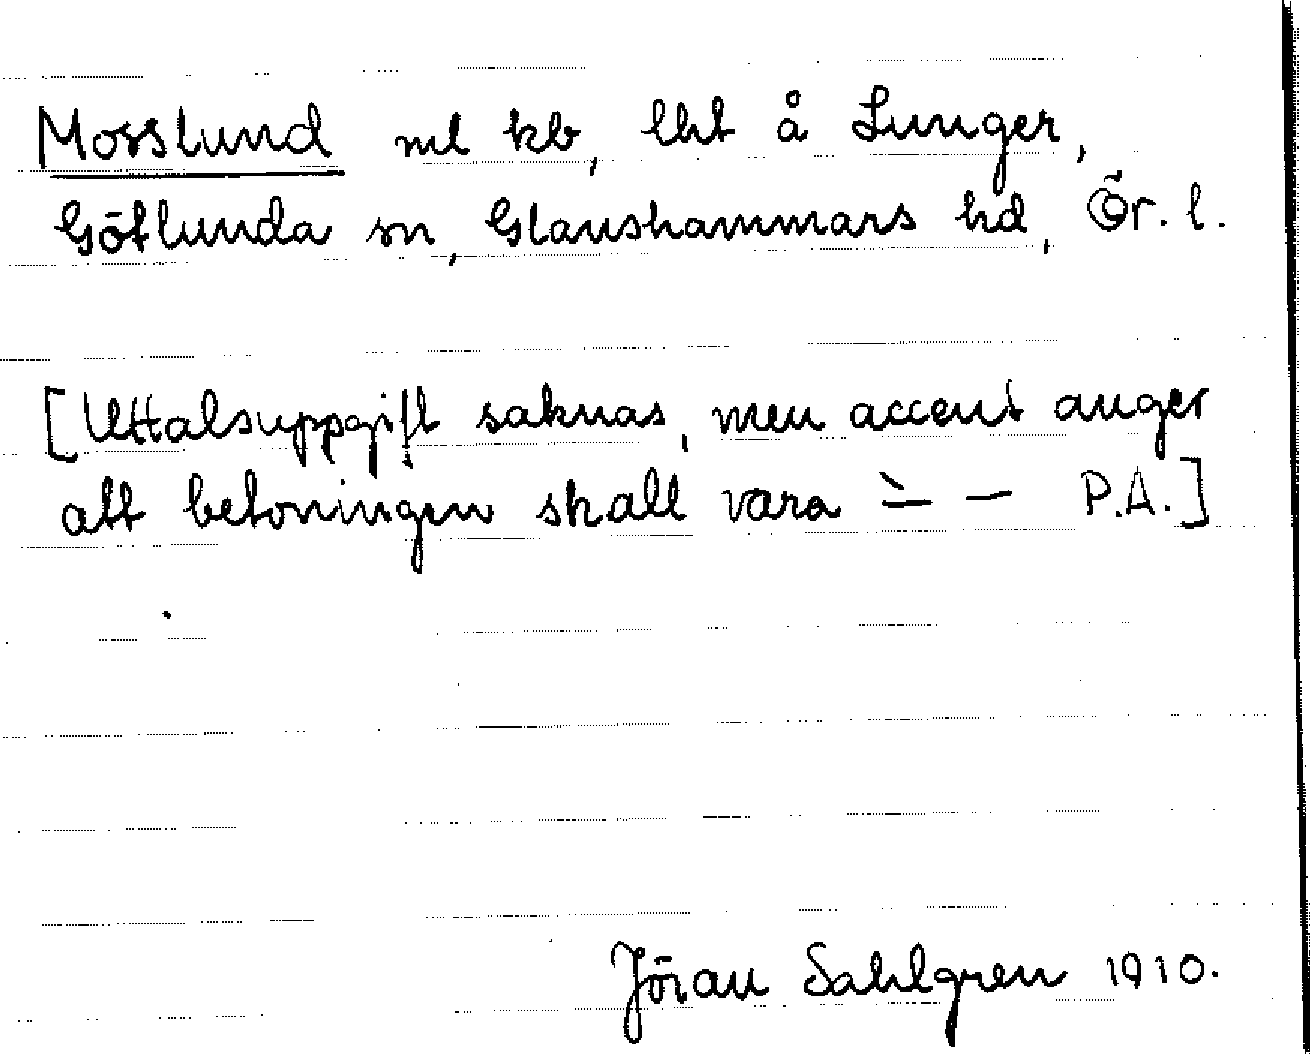 Mosslund ml kb, lht å Lunger,
Götlunda sn, Glanshammars hd, Ör. l.
[Uttalsuppgift saknas, men accent anger
att betoningen skall vara ⨪ – P.A.]
Jöran Sahlgren 1910.